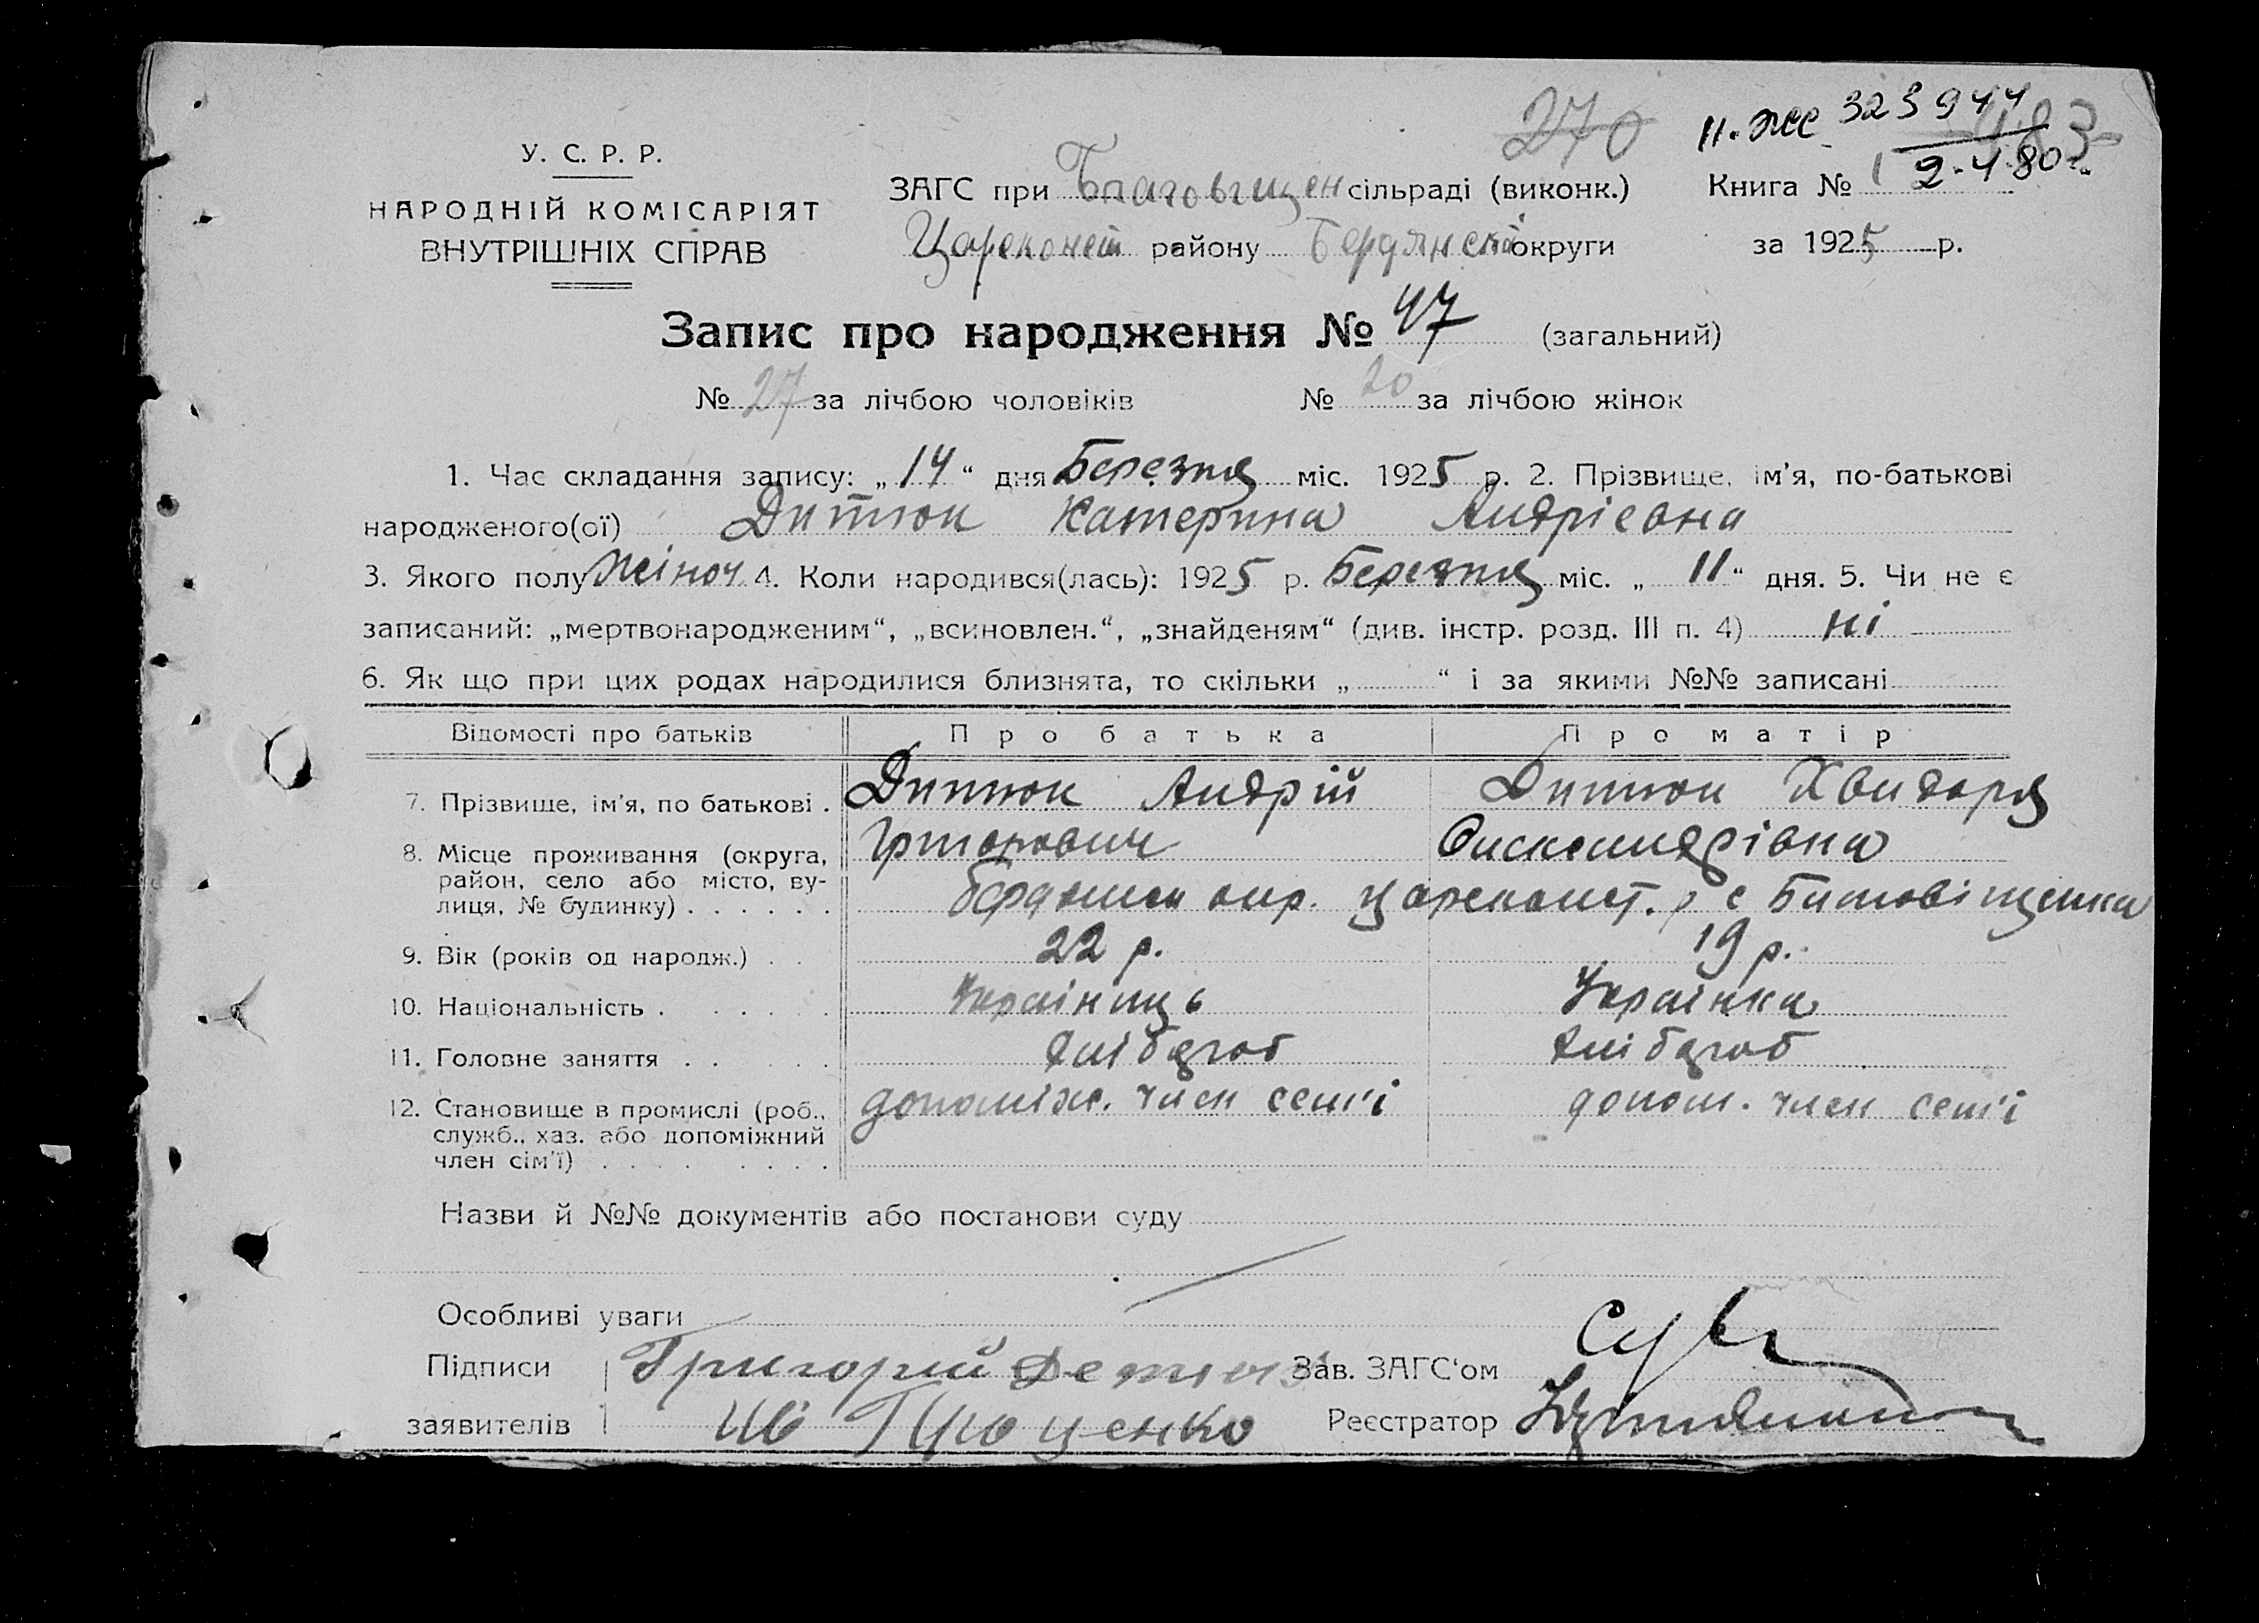 270
н. жс 323944
183
2.4.80г.
У. С. Р. Р.
НАРОДНІЙ КОМІСАРІЯТ
ВНУТРІШНІХ СПРАВ
ЗАГС при Благовещен сільраді (виконк.) Книга № 1
Царекост району Бердянской округи за 1925 р.
Запис про народження № 47 (загальний)
№ 27 за лічбою чоловіків № 20 за лічбою жінок
1. Час складання запису: „14“ дня Березня міс. 1925 р. 2. Прізвище, ім'я, по-батькові
народженого(ої) Дитюк Катерина Андрієвна
3. Якого полу жіноч 4. Коли народився(лась): 1925 р. Березня міс. „11“ дня. 5. Чи не є
записаний: „мертвонародженим“, „всиновлен.“, „знайденям“ (див. інстр. розд. III п. 4) ні
6. Як що при цих родах народилися близнята, то скільки „ “ і за якими №№ записані
Відомості про батьків Про батька Про матір
7. Прізвище, ім'я, по батькові . Дитюк Андрій Дитюк Хвидоря
Григорович Олександрівна
8. Місце проживання (округа, район, село або місто, вулиця, № будинку) . . . . . . Бердянськ окр. Царекост. р с Благовіщенка
9. Вік (років од народж.) . . 22 р. 19 р.
10. Національність . . . . . . Українць Українка
11. Головне заняття . . . . . хлібороб хлібороб
12. Становище в промислі (роб., служб., хаз. або допоміжний член сім'ї) . . . . . . . . допоміж. член сем'і допом. член сем'і
Назви й №№ документів або постанови суду
Особливі уваги
Підписи Григорий Детюк Зав. ЗАГС'ом
заявителів Ив Проценко Реєстратор